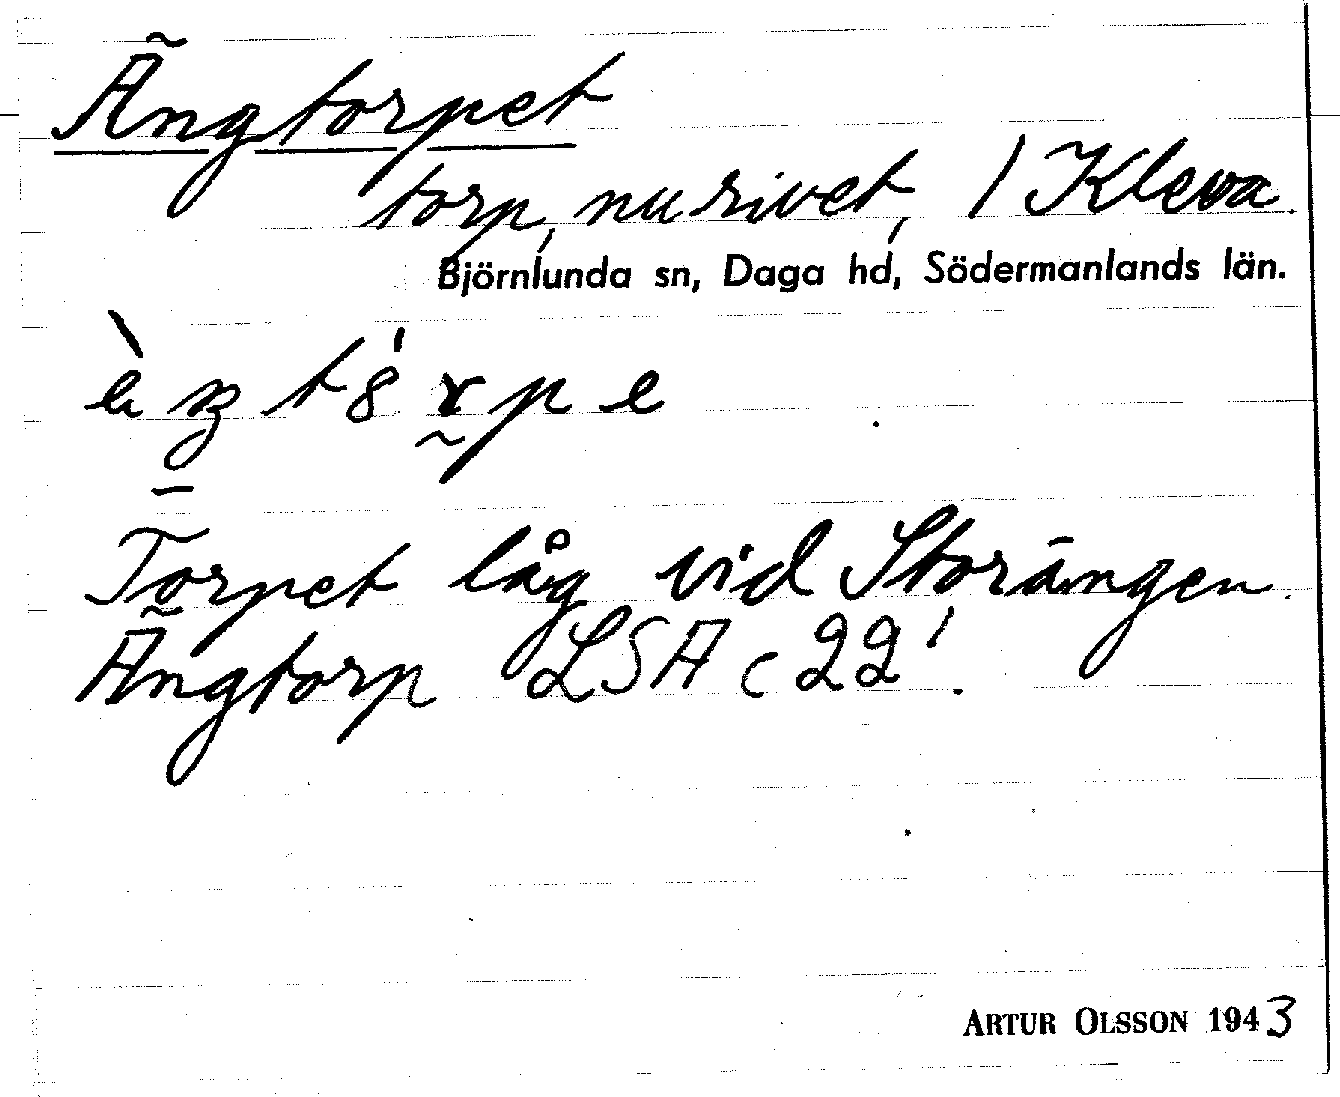 Ängtorpet
torp, nu rivet, / Kleva.
Björnlunda sn, Daga hd, Södermanlands län.
Torpet låg vid Storängen.
Ängtorp LSA c 22'.
ARTUR OLSSON 1943